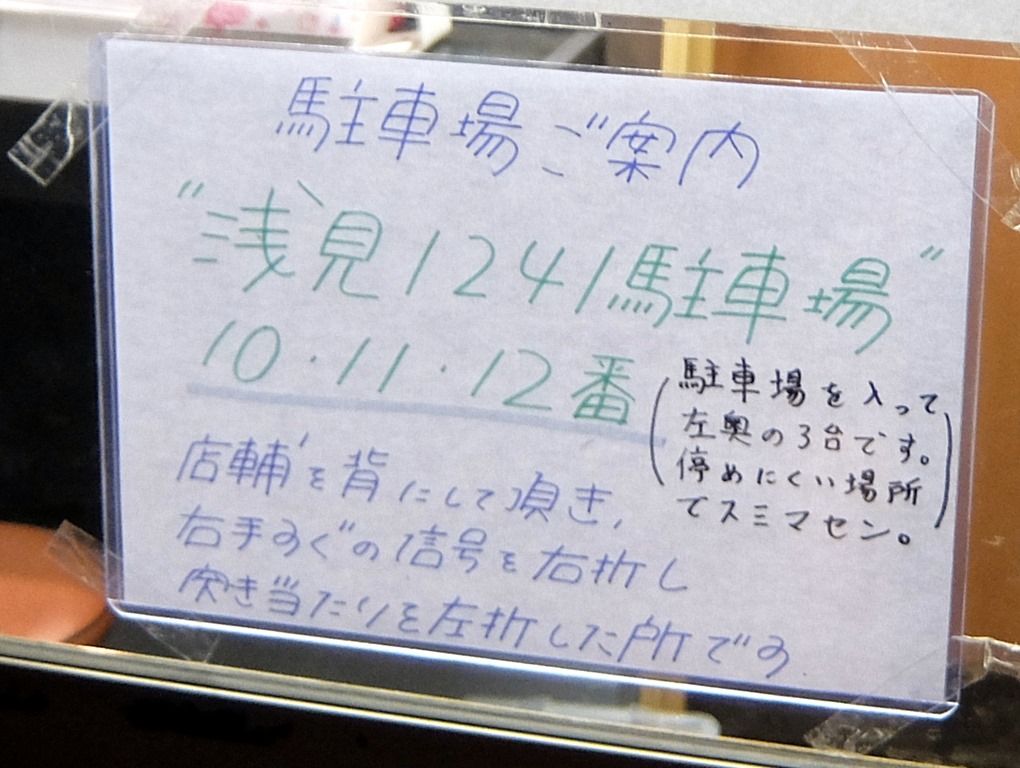 駐車場ご案内
"浅見1241駐車場"
10・11・12番
(駐車場を入って
左奥の3台です。
停めにくい場所
でスミマセン。)
店舗を背にして頂き、
右手すぐの信号を右折し
突き当たりを左折した所です